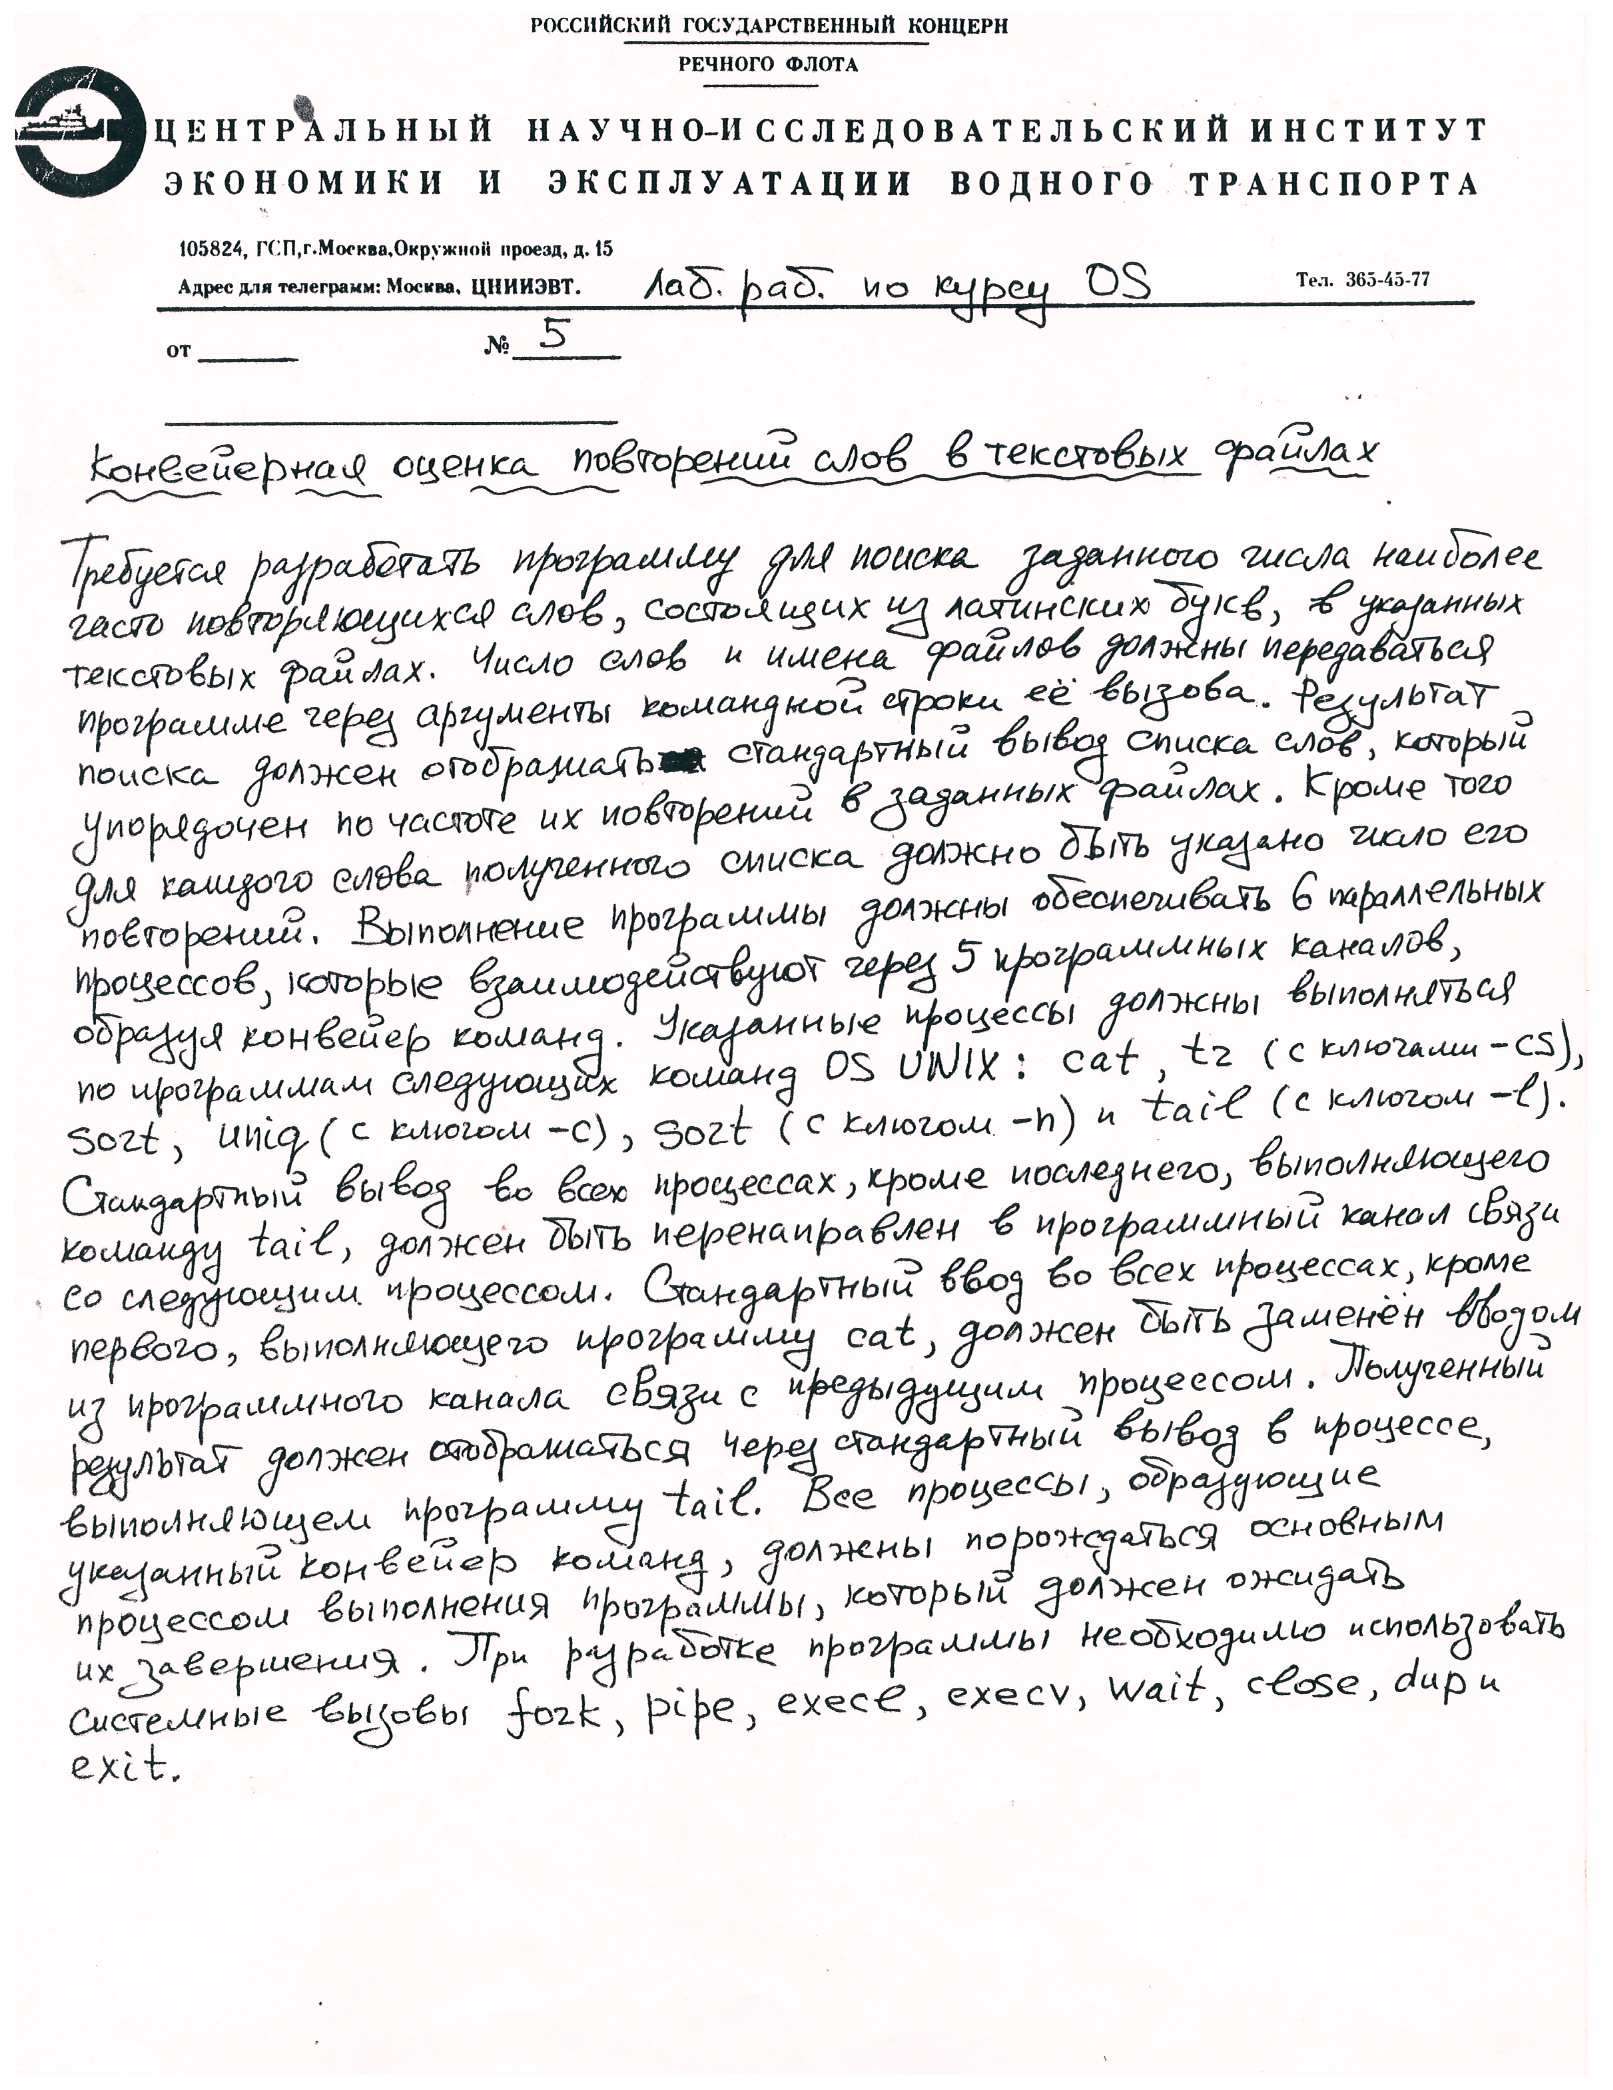 РОССИЙСКИЙ ГОСУДАРСТВЕННЫЙ КОНЦЕРН
РЕЧНОГО ФЛОТА
ЦЕНТРАЛЬНЫЙ НАУЧНО-ИССЛЕДОВАТЕЛЬСКИЙ ИНСТИТУТ
ЭКОНОМИКИ И ЭКСПЛУАТАЦИИ ВОДНОГО ТРАНСПОРТА
105824, ГСП, г.Москва, Окружной проезд, д. 15
Адрес для телеграмм: Москва, ЦНИИЭВТ. Лаб. раб. по курсу OS Тел. 365-45-77
от № 5
Конвейерная оценка повторений слов в текстовых файлах
Требуется разработать программу для поиска заданного числа наиболее
часто повторяющихся слов, состоящих из латинских букв, в указанных
текстовых файлах. Число слов и имена файлов должны передаваться
программе через аргументы командной строки её вызова. Результат
поиска должен отображать стандартный вывод списка слов, который
упорядочен по частоте их повторений в заданных файлах. Кроме того
для каждого слова полученного списка должно быть указано число его
повторений. Выполнение программы должны обеспечивать 6 параллельных
процессов, которые взаимодействуют через 5 программных каналов,
образуя конвейер команд. Указанные процессы должны выполняться
по программам следующих команд OS UNIX: cat, tr (с ключами -cs),
sort, uniq (с ключом -c), sort (с ключом -n) и tail (с ключом -l).
Стандартный вывод во всех процессах, кроме последнего, выполняющего
команду tail, должен быть перенаправлен в программный канал связи
со следующим процессом. Стандартный ввод во всех процессах, кроме
первого, выполняющего программу cat, должен быть заменён вводом
из программного канала связи с предыдущим процессом. Полученный
результат должен отображаться через стандартный вывод в процессе,
выполняющем программу tail. Все процессы, образующие
указанный конвейер команд, должны порождаться основным
процессом выполнения программы, который должен ожидать
их завершения. При разработке программы необходимо использовать
системные вызовы fork, pipe, execl, execv, wait, close, dup и
exit.